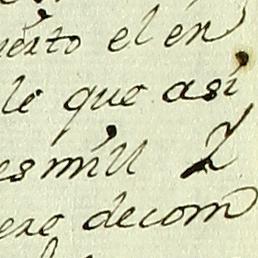 uerto el en
le que así
es mill 2
ere decom